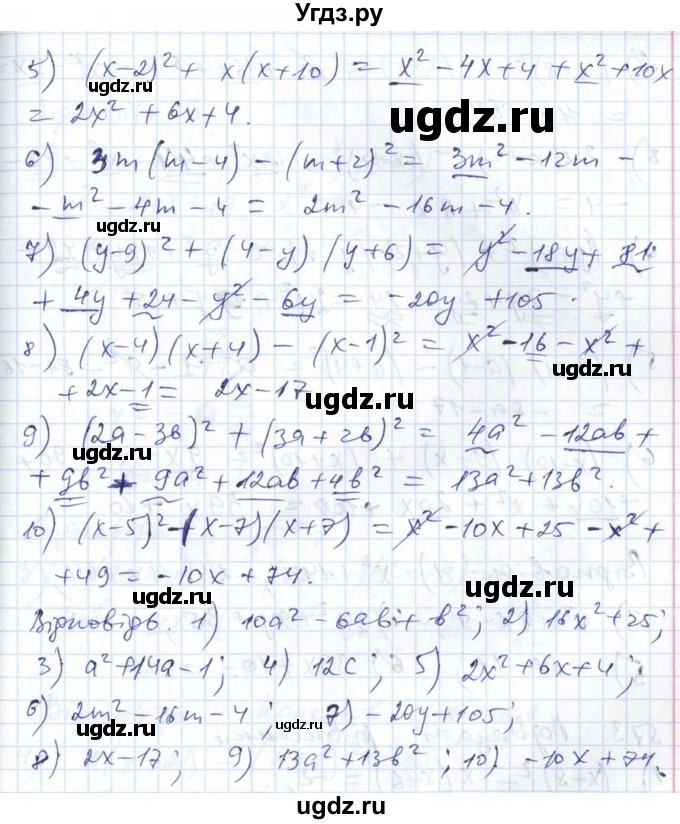 Угдз.ру
5) (x-2)² + x(x+10) = x² - 4x + 4 + x² + 10x
= 2x² + 6x + 4.
ugdz.ru
6) 3m(m-4) - (m+2)² = 3m² - 12m -
- m² - 4m - 4 = 2m² - 16m - 4.
ugdz.ru
7) (y-9)² + (4-y)(y+6) = y² - 18y + 81
+ 4y + 24 - y² - 6y = -20y + 105.
ugdz.ru ugdz.ru
8) (x-4)(x+4) - (x-1)² = x² - 16 - x² +
+ 2x - 1 = 2x - 17
ugdz.ru
9) (2a-3b)² + (3a+2b)² = 4a² - 12ab +
+ 9b² + 9a² + 12ab + 4b² = 13a² + 13b².
10) (x-5)² - (x-7)(x+7) = x² - 10x + 25 - x² +
ugdz.ru
+ 49 = -10x + 74.
ugdz.ru
Відповідь. 1) 10a² - 6ab + b²; 2) 16x² + 25;
3) a² + 14a - 1; 4) 12c; 5) 2x² + 6x + 4;
6) 2m² - 16m - 4; 7) -20y + 105;
ugdz.ru ugdz.ru
8) 2x - 17; 9) 13a² + 13b²; 10) -10x + 74.
ugdz.ru